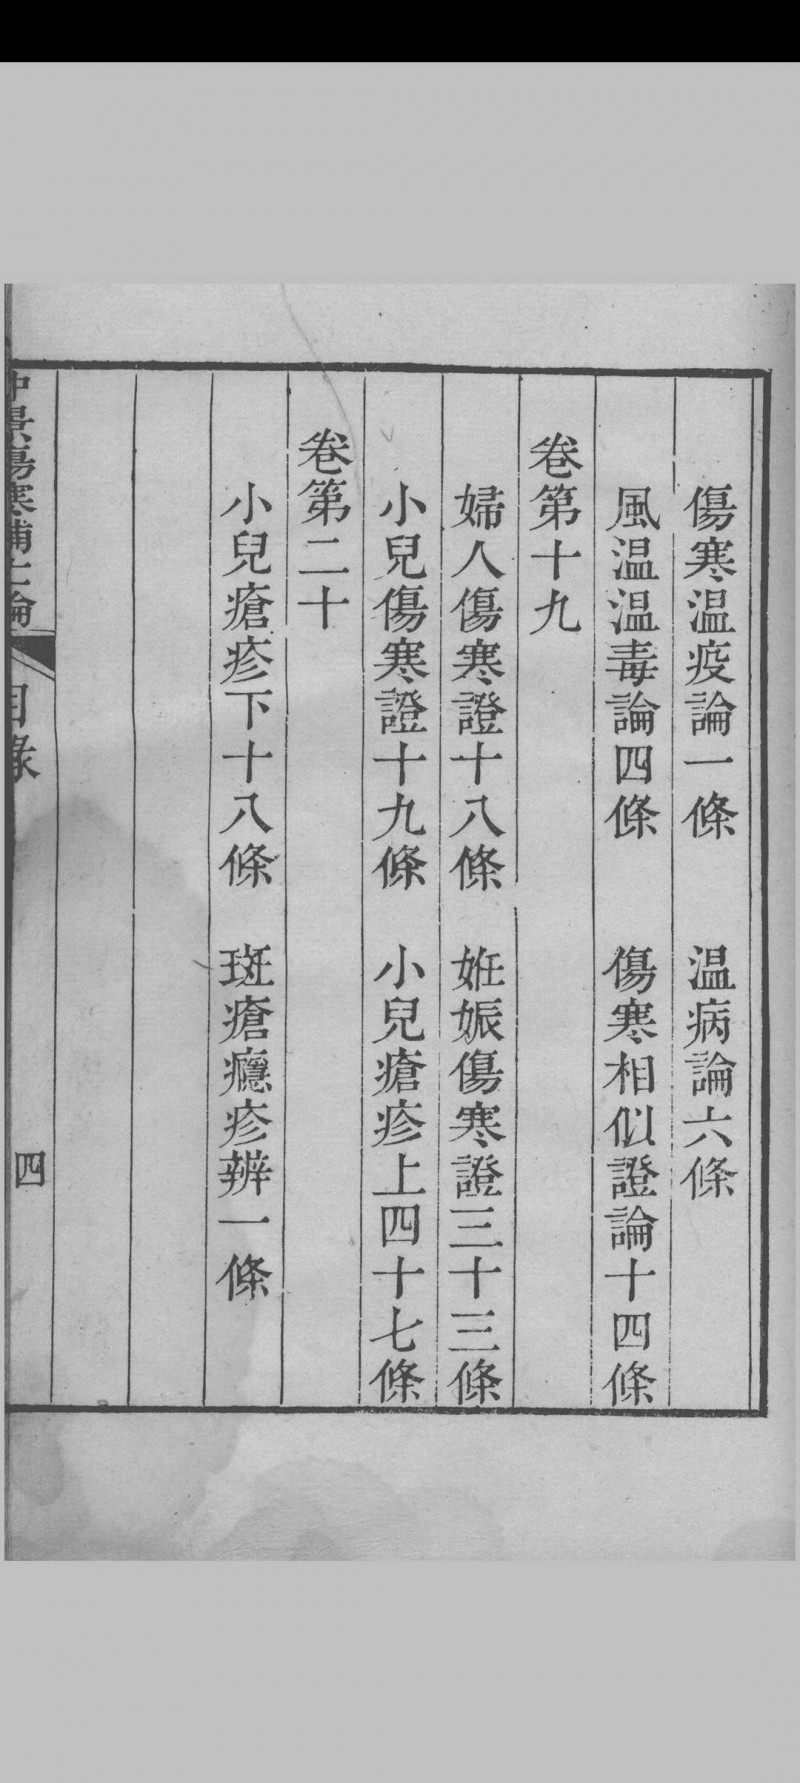 傷寒温疫論一條 温病論六條
風温温毒論四條 傷寒相似證論十四條
卷第十九
婦人傷寒證十八條 妊娠傷寒證三十三條
小兒傷寒證十九條 小兒瘡疹上四十七條
卷第二十
小兒瘡疹下十八條 斑瘡癮疹辨一條
仲景傷寒補亡論 目錄 四